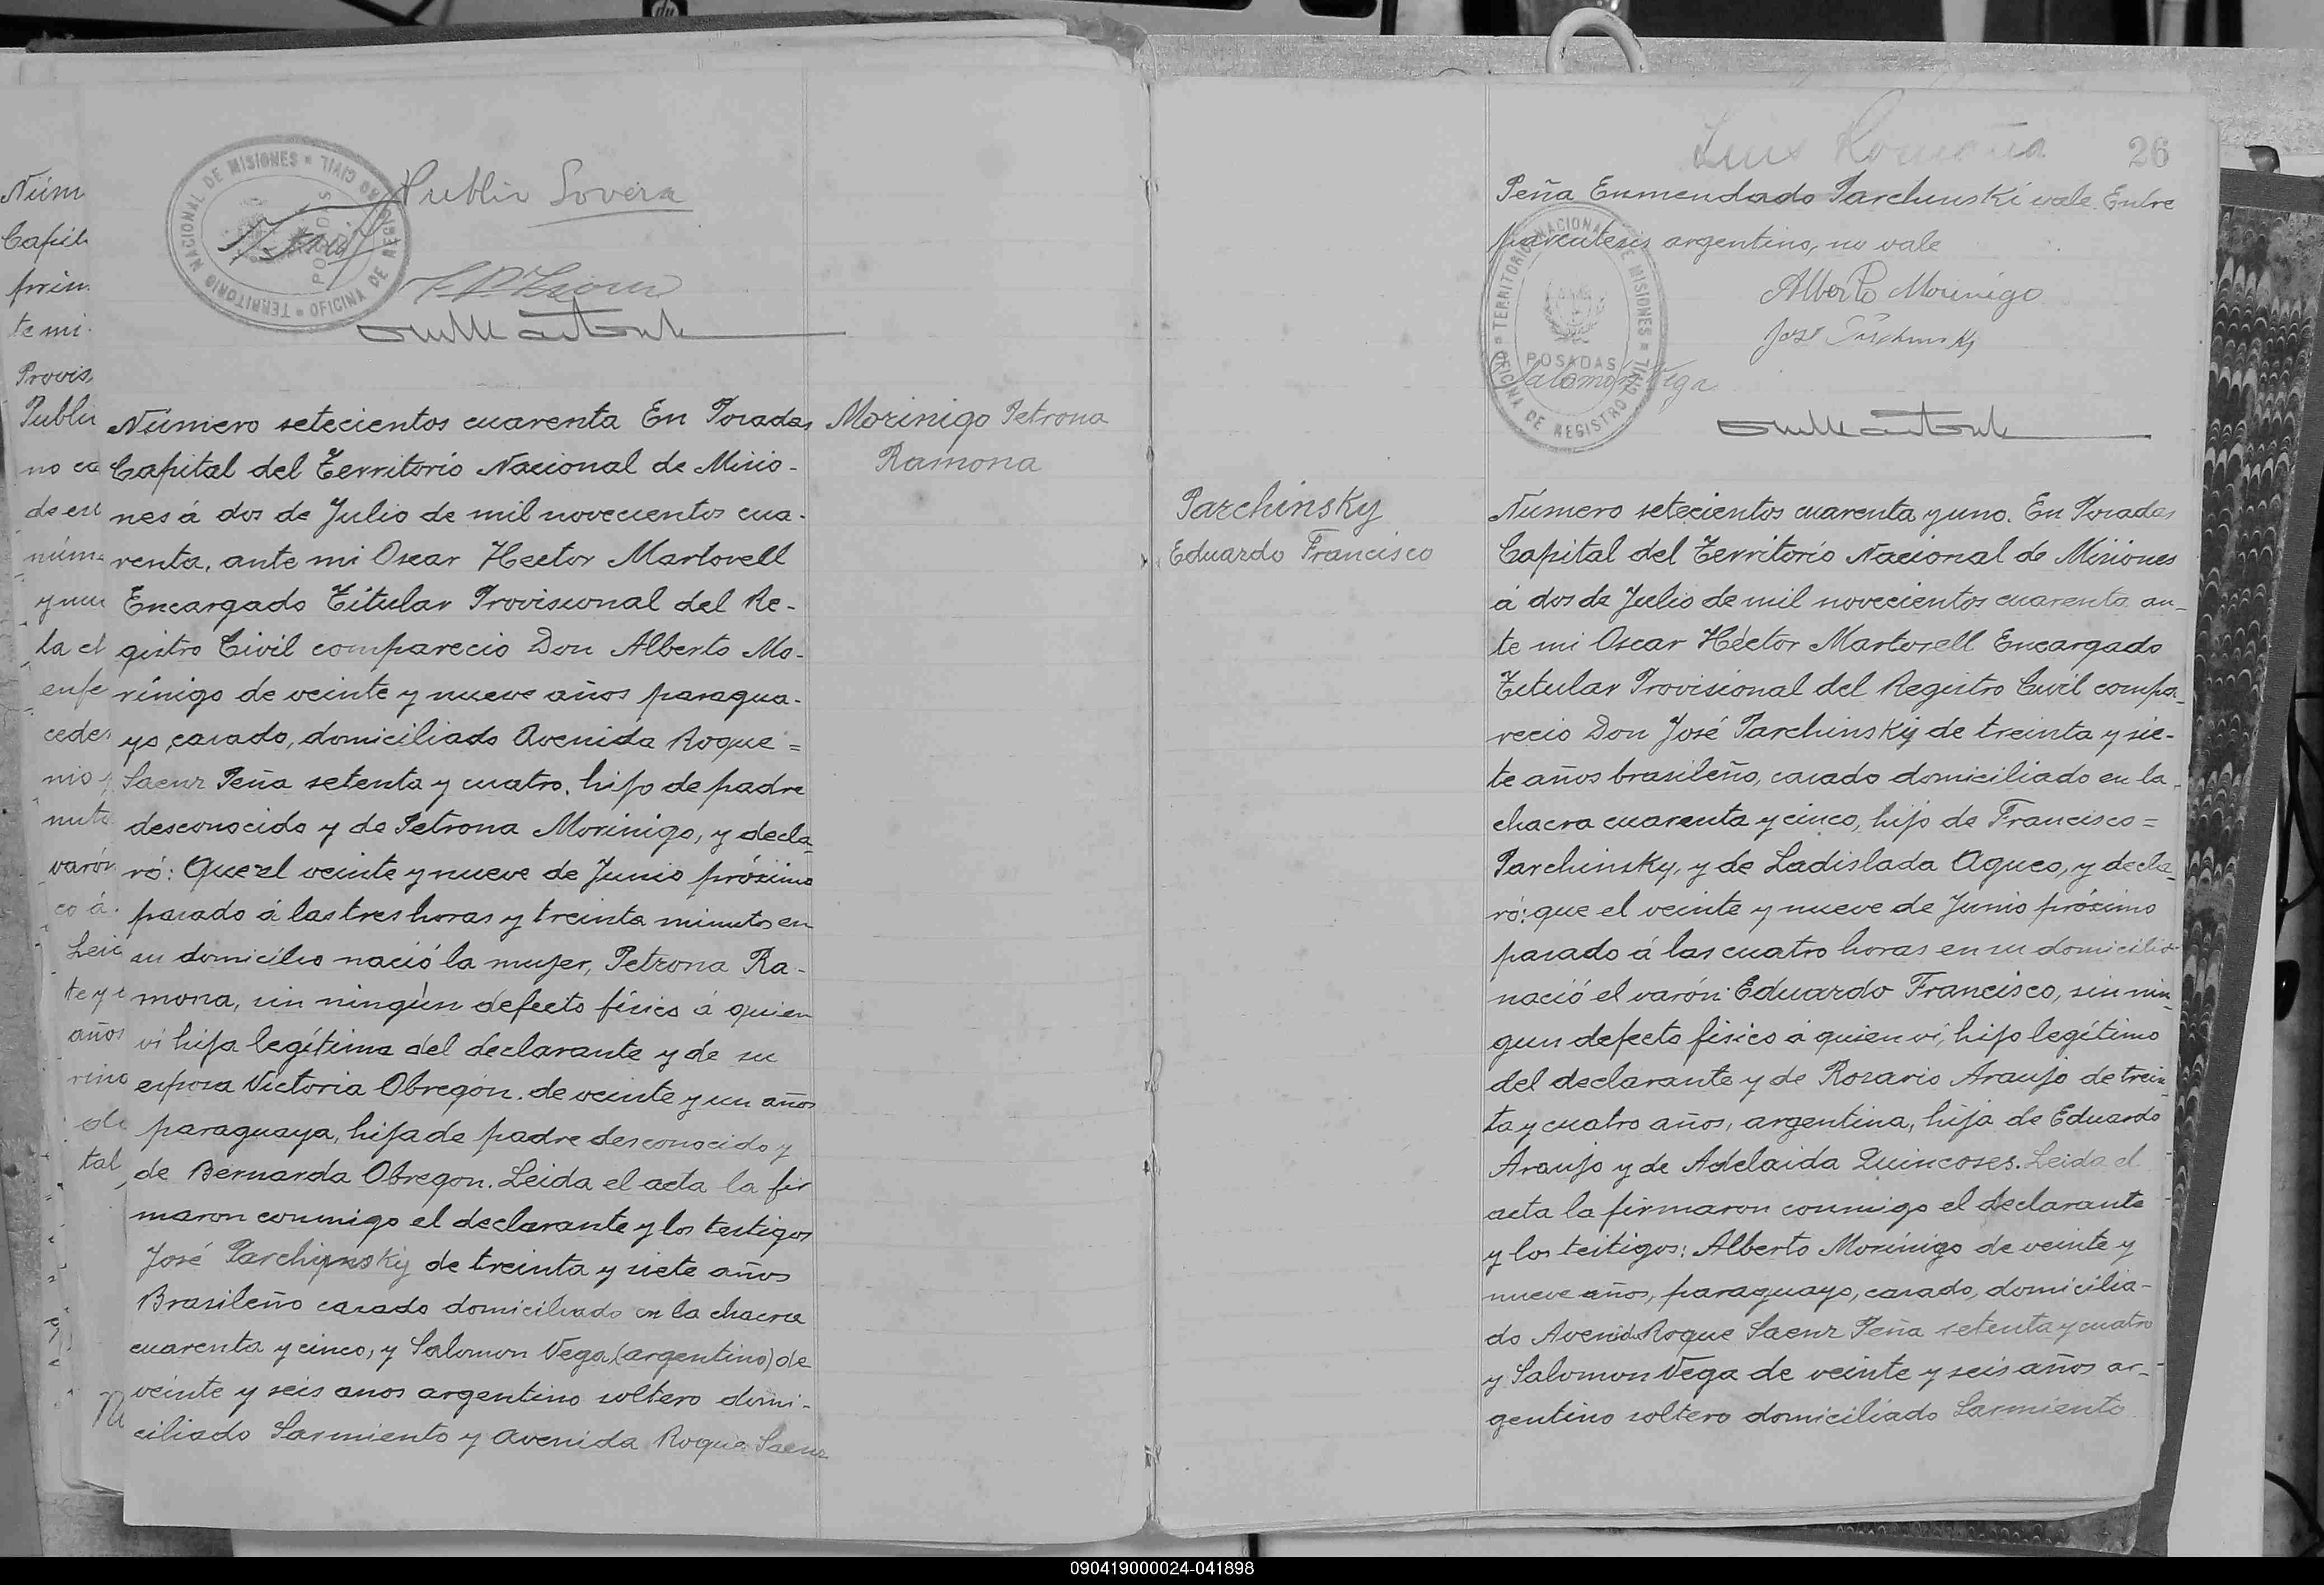 Núm
Capit
prin
te mi
Provis
Publi
no ca
de est
núm
y nu
ta el
enfe
ceder
nio y
nuto
varón
co á
Leid
te y
años
rino
de
tal
TERRITORIO NACIONAL DE MISIONES
OFICINA DE REGISTRO CIVIL
POSADAS
Publio Lovera
Número setecientos cuarenta En Posadas
Capital del Territorio Nacional de Misio-
nes á dos de Julio de mil novecientos cua-
renta, ante mi Oscar Hector Martorell
Encargado Titular Provisional del Re-
gistro Civil comparecio Don Alberto Mo-
rínigo de veinte y nueve años paragua-
yo, casado, domiciliado Avenida Roque =
Saenz Peña setenta y cuatro, hijo de padre
desconocido y de Petrona Morinigo, y decla-
ró: Que el veinte y nueve de Junio próximo
pasado á las tres horas y treinta minutos en
su domicilio nació la mujer, Petrona Ra-
mona, sin ningún defecto físico á quien
vi hija legítima del declarante y de su
esposa Victoria Obregón. de veinte y un años
paraguaya, hija de padre desconocido y
de Bernarda Obregon. Leida el acta la fir
maron conmigo el declarante y los testigos
José Parchinsky de treinta y siete años
Brasileño casado domiciliado en la chacra
cuarenta y cinco, y Salomon Vega (argentino) de
veinte y seis anos argentino soltero domi-
ciliado Sarmiento y Avenida Roque Saenz
Morinigo Petrona
Ramona
Luis Romaña
26
Peña Enmendado Parchinski vale. Entre
parentesis argentino, no vale
TERRITORIO NACIONAL DE MISIONES
POSADAS
OFICINA DE REGISTRO CIVIL
Alberto Morinigo
José Parchinsky
Salomon Vega
Parchinsky
Eduardo Francisco
Número setecientos cuarenta y uno. En Posadas
Capital del Territorio Nacional de Misiones
á dos de Julio de mil novecientos cuarenta an-
te mi Oscar Héctor Martorell Encargado
Titular Provisional del Registro Civil compa-
recio Don José Parchinsky de treinta y sie-
te años brasileño, casado domiciliado en la
chacra cuarenta y cinco, hijo de Francisco =
Parchinsky, y de Ladislada Agueo, y decla-
ró: que el veinte y nueve de Junio próximo
pasado á las cuatro horas en su domicilio
nació el varón: Eduardo Francisco, sin nin-
gun defecto físico á quien vi, hijo legítimo
del declarante y de Rosario Araujo de trein-
ta y cuatro años, argentina, hija de Eduardo
Araujo y de Adelaida Quincoses. Leida el
acta la firmaron conmigo el declarante
y los testigos: Alberto Morínigo de veinte y
nueve años, paraguayo, casado, domicilia-
do Avenida Roque Saenz Peña setenta y cuatro
y Salomon Vega de veinte y seis años ar-
gentino soltero domiciliado Sarmiento
090419000024-041898